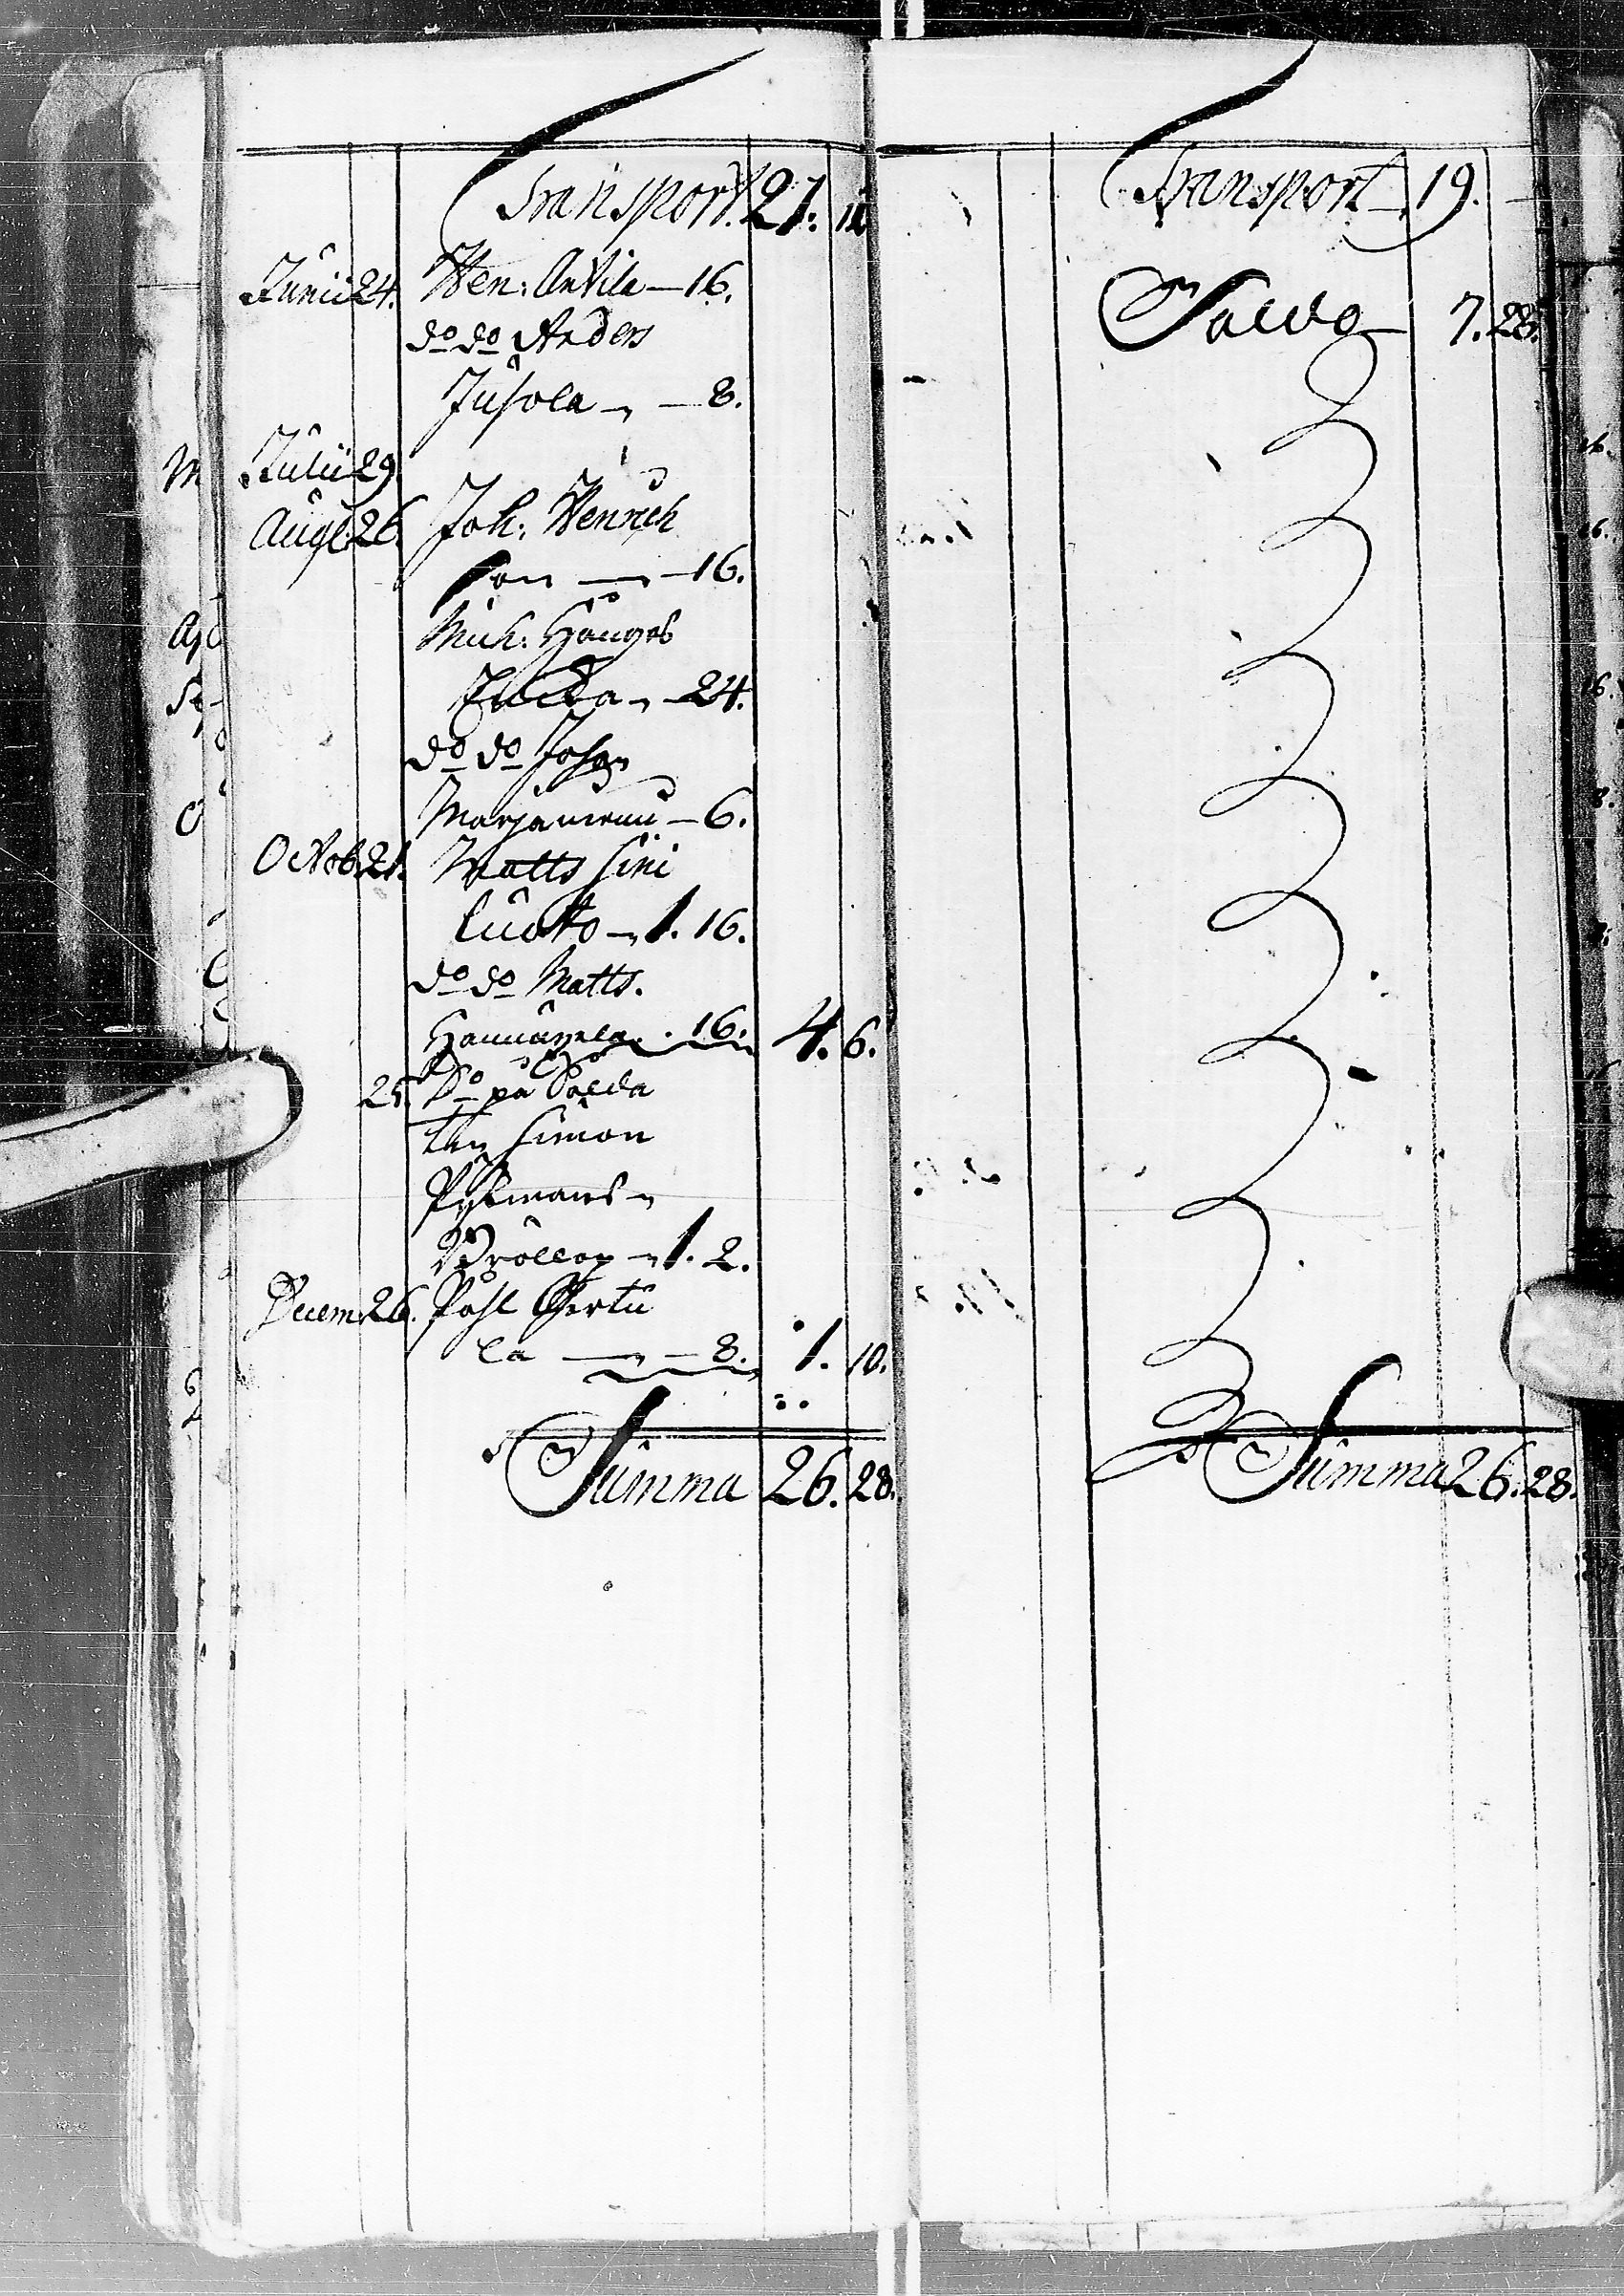 Transport. 21. 12
Junii 24. Hen: Anttila — 16.
do do Anders
Jusola — 8.
Julii 29.
Aug: 26. Joh: Henrich
son — 16.
Mich: Hauges
— 24.
do do Johan
Marjaniemi — 6.
Octob. 21. Matts Sini
luoto — 1. 16.
do do Matts.
16. 4. 6.
25. Do på
Simon
Bröllop — 1. 2.
Decem: 26. Påhl Perttu
la — 8. 1. 10.
Summa 26. 28.
Transport — 19. —
Saldo — 7. 28.
Summa 26. 28.